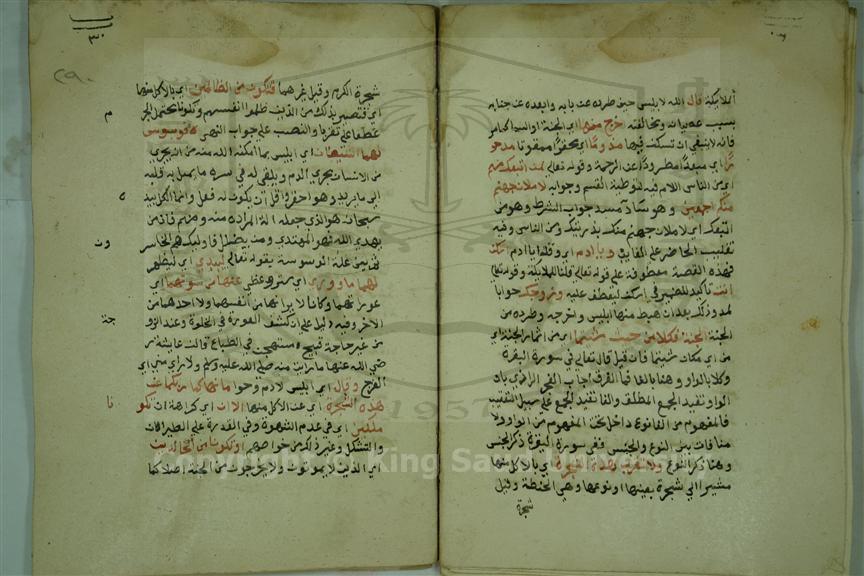 الملائكة قال الله لابليس حين طرده عن بابه وابعده عن جنابه
بسبب عصيانه ومخالفته اخرج منها اي الجنة او السماء
فانه لا ينبغي ان تسكن فيها مذؤما اي محقورا ممقوتا مدحو
را اي مبعدا مطرودا عن الرحمة وقوله تعالى لمن تبعك منهم
اي من الناس اللام فيه لتوطية القسم وجوابه لاملان جهنم
منكم اجمعين وهو ساد مسد جواب الشرط وهو من
اتبعك اي لاملان جهنم منك بذريتك ومن الناس وفيه
تغليب الحاضر على الغايب ويا ادم اي وقلنا يا ادم اسكن
فهذه القصة معطوفة على قوله تعالى قلنا للملايكة وقوله تعالى
انت تاكيد للضمير في اسكن ليعطف عليه وزوجك حوا با
لمد وذلك بعد ان هبط منها ابليس واخرجه وطرده من
الجنة الجنة فكلا من حيث شئتما اي من ثمار الجنة اي
من اي مكان شيتما فان قيل قال تعالى في سورة البقرة
وكلا بالواو وهنا بالفا فما الفرق اجاب الفخر الرازي بان
الواو تفيد الجمع المطلق والفا تفيد الجمع على سبيل التعقيب
فالمفهوم من الفا نوع داخل تحت المفهوم من الواو ولا
منافات بين النوع والجنس ففي سورة البقرة ذكر الجنس
وهنا ذكر النوع ولا تقربا هذه الشجرة اي بالاكل منها
مشيرا الى شجرة بعينها او نوعها وهي الحنطة وقيل
شجرة
شجرة الكرم وقيل غيرهما فتكونا من الظالمين اي بالاكل منها
اي فتصيرا بذلك من الذين ظلموا انفسهم وتكونا يحتمل الجز
م عطفا على تقربا والنصب على جواب النهي فوسوس
لهما الشيطان اي ابليس بما امكنه الله منه من انه يجري
من الانسان مجرى الدم ويلقي له في سره ما يميل به قلبه
الى ما يريد وهو احقر واقل ان يكون له فعل وانما الكل بيد
ه سبحانه هو الذي جعله الة لمراده منه ومنهم فان من
يهدي الله فهو المهتدي ومن يضلل فاوليك هم الخاسر
ون ثم بين علة الوسوسة بقوله تعالى ليبدي اي ليظهر
لهما ما ووري اي ستر وغطي عنهما من سوآتهما اي
عورتهما وكانا لا يريانها من انفسهما ولا احدهما من
الاخر وفيه دليل على ان كشف العورة في الخلوة وعند الزو
جة من غير حاجة قبيح مستهجن في الطباع قالت عايشة ر
ضي الله عنها ما رايت منه صلى الله عليه وسلم ولا راى مني اي
الفرج وقال اي ابليس لادم وحوا ما نهاكما ربكما عن
هذه الشجرة اي عن الاكل منها الا ان اي كراهة ان تكو
نا ملكين اي في عدم الشهوة وفي القدرة على الطيران
والتشكل وغير ذلك من خواصهم او تكونا من الخالدين
اي الذين لا يموتون ولا يخرجون من الجنة اصلا كما
٣٠
King Saud
1957